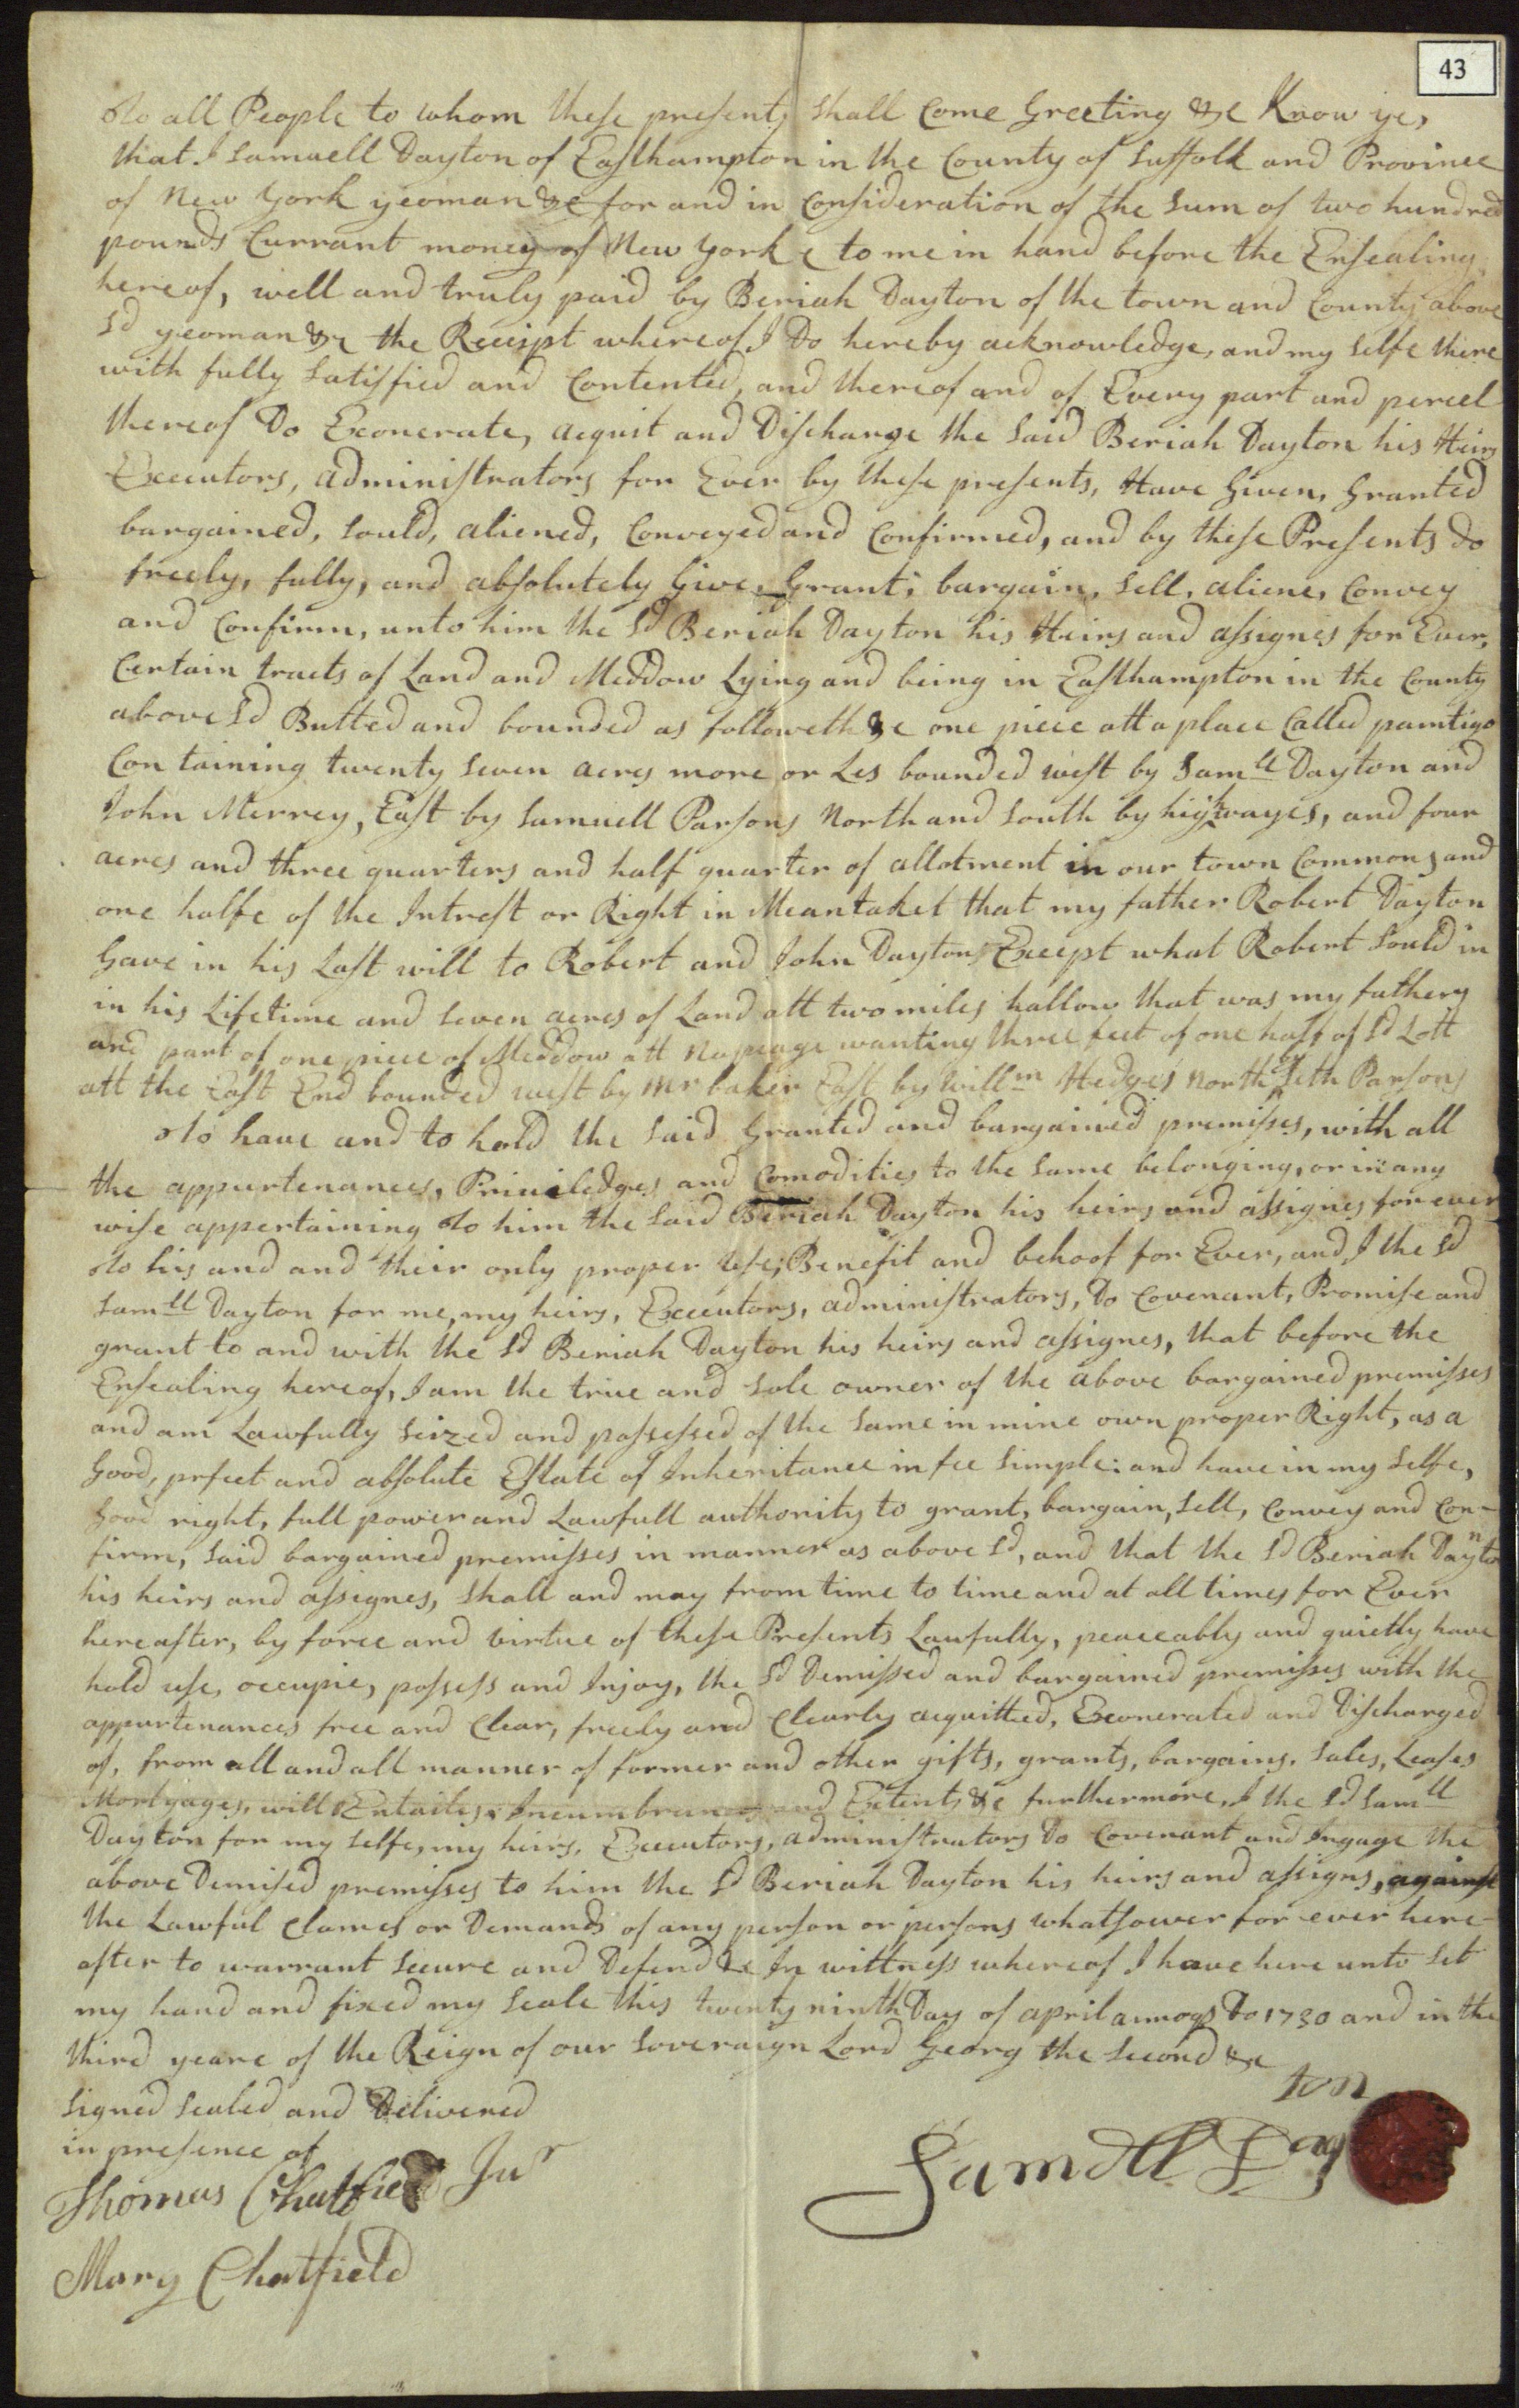 43
To all People to whom these presents shall Come Greeting &c Know ye,
that I Samuell Dayton of Easthampton in the County of Suffolk and Province
of New York yeoman &c for and in Consideration of the Sum of two hundred
pounds Currant money of New York to me in hand before the Ensealing
hereof, well and truly paid by Beriah Dayton of the town and County above
Sd yeoman &c the Receipt whereof I Do hereby acknowledge, and my selfe there
with fully Satisfied and Contented, and thereof and of Every part and percel
thereof Do Exonerate, acquit and Discharge the Said Beriah Dayton his Heirs
Executors, administrators for Ever by these presents, Have Given, Granted
bargained, Sould, aliened, Conveyed and Confirmed, and by these Presents Do
freely, fully, and absolutely Give, Grant, bargain, Sell, aliene, Convey
and Confirm, unto him the Sd Beriah Dayton his Heirs and assignes for Ever,
Certain tracts of Land and Meddow Lying and being in Easthampton in the County
above Sd Butted and bounded as followeth &c one piece att a place Called pamtigo
Containing twenty Seven acres more or Les bounded west by Samll Dayton and
John Merrey, East by Samuell Parsons North and South by highwayes, and four
acres and three quarters and half quarter of allotment in our town Commons and
one halfe of the Intrest or Right in Meantaket that my father Robert Dayton
Gave in his Last will to Robert and John Dayton Except what Robert Sould in
in his Lifetime and Seven acres of Land att two miles hallow that was my fathers
and part of one piece of Meddow att Napeage wanting three feet of one half of Sd Lott
att the East End bounded west by Mr baker East by Willm Hedges North Seth Parsons
To have and to hold the Said Granted and bargained premisses, with all
the appurtenances, Priviledges and Comodities to the Same belonging, or in any
wise appertaining To him the Said Beriah Dayton his heirs and assignes for ever
To his and and their only proper Use, Benefit and behoof for Ever, and I the Sd
Samll Dayton for me, my heirs, Executors, administrators, Do Covenant, Promise and
grant to and with the Sd Beriah Dayton his heirs and assignes, that before the
Ensealing hereof, I am the true and Sole owner of the above bargained premisses
and am Lawfully Seized and possessed of the Same in mine own proper Right, as a
Good, prfect and absolute Estate of Inheritance in fee Simple: and have in my Selfe,
Good right, full power and Lawfull authority to grant, bargain, Sell, Convey and Con-
firm, Said bargained premisses in manner as above Sd, and that the Sd Beriah Dayton
his heirs and assignes, Shall and may from time to time and at all times for Ever
hereafter, by force and virtue of these Presents Lawfully, peaceably and quietly have
hold use, occupie, possess and Injoy, the Sd Demissed and bargained premisses with the
appurtenances free and Clear, freely and Clearly acquitted, Exonerated and Discharged
of, from all and all manner of former and other gifts, grants, bargains, Sales, Leases
Mortgages, wills Entailes, Incumbrances and Extents &c furthermore, I the Sd Samll
Dayton for my Selfe, my heirs, Executors, administrators Do Covenant and Ingage the
above Demised premisses to him the Sd Beriah Dayton his heirs and assigns, against
the Lawful Clames or Demands of any person or persons whatsower for ever here-
after to warrant Secure and Defend &c In wittness whereof I have here unto Set
my hand and fixed my Seale this twenty ninth Day of april annoqs Do 1730 and in the
third yeare of the Reign of our Soveraign Lord Georg the Second &c
Signed Sealed and Delivered
in presence of
Thomas Chatfield Jur
Mary Chatfield
Samuell Dayton